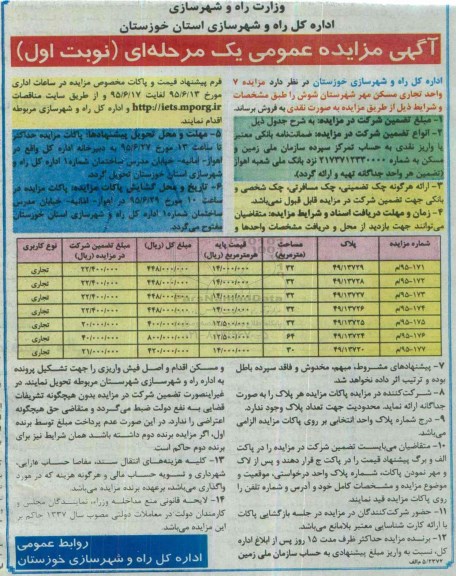 وزارت راه و شهرسازی
اداره کل راه و شهرسازی استان خوزستان
آگهی مزایده عمومی یک مرحله‌ای (نوبت اول)
اداره کل راه و شهرسازی خوزستان در نظر دارد مزایده ۷
واحد تجاری مسکن مهر شهرستان شوش را طبق مشخصات
و شرایط ذیل از طریق مزایده به صورت نقدی به فروش برساند.
۱- مبلغ تضمین شرکت در مزایده: به شرح جدول ذیل
۲- انواع تضمین شرکت در مزایده: ضمانت‌نامه بانکی معتبر
یا واریز نقدی به حساب تمرکز سپرده سازمان ملی زمین و
مسکن به شماره ۲۱۷۳۷۱۲۳۳۰۰۰۰ نزد بانک ملی شعبه اهواز
(تضمین هر واحد جداگانه تهیه و ارائه گردد).
۳- ارائه هرگونه چک تضمینی، چک مسافرتی، چک شخصی و
بانکی جهت تضمین شرکت در مزایده قابل قبول نمی‌باشد.
۴- زمان و مهلت دریافت اسناد و شرایط مزایده: متقاضیان
می‌توانند جهت بازدید از محل و دریافت مشخصات واحدها و
فرم پیشنهاد قیمت و پاکات مخصوص مزایده در ساعات اداری
مورخ ۹۵/۶/۱۳ لغایت ۹۵/۶/۱۷ و از طریق سایت مناقصات
http://iets.mporg.ir و اداره کل راه و شهرسازی مربوطه
اقدام نمایند.
۵- مهلت و محل تحویل پیشنهادها: پاکات مزایده حداکثر
تا ساعت ۱۳ مورخ ۹۵/۶/۲۷ به دبیرخانه اداره کل واقع در
اهواز- امانیه- خیابان مدرس ساختمان شماره۱ اداره کل راه و
شهرسازی استان خوزستان تحویل گردد.
۶- تاریخ و محل گشایش پاکات مزایده: پاکات مزایده در
ساعت ۱۰ مورخ ۹۵/۶/۲۹ در اهواز- امانیه- خیابان مدرس
ساختمان شماره۱ اداره کل راه و شهرسازی استان خوزستان
مفتوح می‌گردد.
شماره مزایده پلاک مساحت (مترمربع) قیمت پایه هرمترمربع (ریال) مبلغ کل (ریال) مبلغ تضمین شرکت در مزایده (ریال) نوع کاربری
۹۵-۱۷۱م ۴۹/۱۳۷۲۹ ۳۲ ۱۴/۰۰۰/۰۰۰ ۴۴۸/۰۰۰/۰۰۰ ۲۲/۴۰۰/۰۰۰ تجاری
۹۵-۱۷۲م ۴۹/۱۳۷۲۸ ۳۲ ۱۴/۰۰۰/۰۰۰ ۴۴۸/۰۰۰/۰۰۰ ۲۲/۴۰۰/۰۰۰ تجاری
۹۵-۱۷۳م ۴۹/۱۳۷۲۷ ۳۲ ۱۴/۰۰۰/۰۰۰ ۴۴۸/۰۰۰/۰۰۰ ۲۲/۴۰۰/۰۰۰ تجاری
۹۵-۱۷۴م ۴۹/۱۳۷۲۶ ۳۲ ۱۴/۰۰۰/۰۰۰ ۴۴۸/۰۰۰/۰۰۰ ۲۲/۴۰۰/۰۰۰ تجاری
۹۵-۱۷۵م ۴۹/۱۳۷۲۵ ۳۲ ۱۲/۵۰۰/۰۰۰ ۴۰۰/۰۰۰/۰۰۰ ۲۰/۰۰۰/۰۰۰ تجاری
۹۵-۱۷۶م ۴۹/۱۳۷۲۴ ۶۴ ۱۲/۵۰۰/۰۰۰ ۸۰۰/۰۰۰/۰۰۰ ۴۰/۰۰۰/۰۰۰ تجاری
۹۵-۱۷۷م ۴۹/۱۳۷۲۰ ۳۰ ۱۴/۰۰۰/۰۰۰ ۴۲۰/۰۰۰/۰۰۰ ۲۱/۰۰۰/۰۰۰ تجاری
۷- پیشنهادهای مشروط، مبهم، مخدوش و فاقد سپرده باطل
بوده و ترتیب اثر داده نخواهد شد.
۸- شرکت‌کننده در مزایده پاکات مزایده هر پلاک را به صورت
جداگانه ارائه نماید. محدودیت جهت تعداد پلاک وجود ندارد.
۹- درج شماره پلاک واحد انتخابی بر روی پاکات مزایده الزامی
می‌باشد.
۱۰- متقاضیان می‌بایست تضمین شرکت در مزایده را در پاکت
الف و برگ پیشنهاد قیمت را در پاکت ج قرار دهند و پس از لاک
و مهر نمودن پاکات، شماره پلاک واحد درخواستی، موقعیت و
موضوع مزایده و مشخصات کامل خود و آدرس و شماره تلفن را
روی پاکات مزایده قید نمایند.
۱۱- حضور شرکت‌کنندگان در مزایده در جلسه بازگشایی پاکات
با ارائه کارت شناسایی معتبر بلامانع می‌باشد.
۱۲- برنده مزایده حداکثر ظرف مدت ۱۵ روز پس از ابلاغ اداره
کل، نسبت به واریز مبلغ پیشنهادی به حساب سازمان ملی زمین
۵/۲۳۷۲ م الف
و مسکن اقدام و اصل فیش واریزی را جهت تشکیل پرونده
به اداره راه و شهرسازی شهرستان مربوطه تحویل نمایند، در
غیراینصورت تضمین شرکت در مزایده بدون هیچگونه تشریفات
قضایی به نفع دولت ضبط می‌گردد و متقاضی حق هیچگونه
اعتراضی را ندارد. در این صورت عدم پرداخت مبلغ توسط برنده
اول، اگر مزایده برنده دوم داشته باشد همان شرایط نیز برای
برنده دوم حاکم است.
۱۳- کلیه هزینه‌های انتقال سند، مفاصا حساب دارایی،
شهرداری و تسویه حساب مالی و هرگونه هزینه که در مورد
واگذاری می‌باشد، برعهده برنده مزایده می‌باشد.
۱۴- لایحه قانونی منع مداخله وزراء، نمایندگان مجلس و
کارمندان دولت در معاملات دولتی مصوب سال ۱۳۳۷ حاکم بر
این مزایده می‌باشد.
روابط عمومی
اداره کل راه و شهرسازی خوزستان